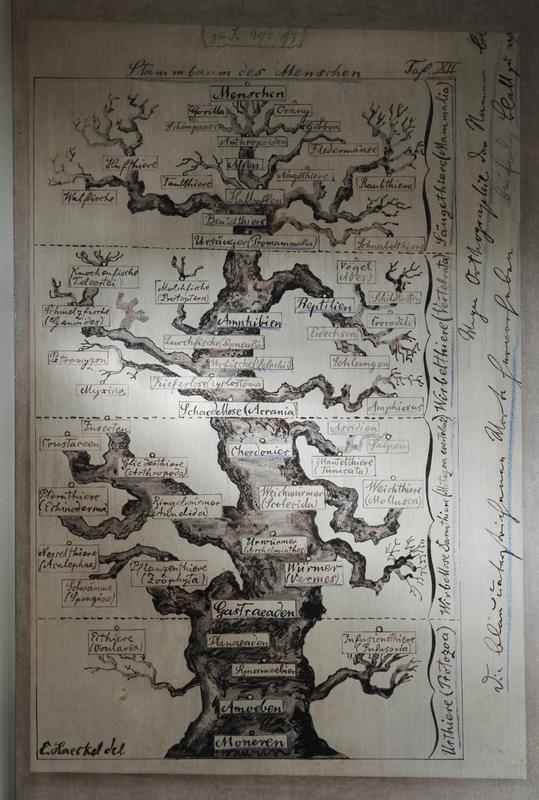 Stammbaum des Menschen
Taf. XII
Menschen
Gorilla
Orang
Schimpanse
Gibbon
Anthropoiden
Fledermäuse
Hufthiere
Affen
Faulthiere
Nagethiere
Raubthiere
Walfische
Halbaffen
Beutelthiere
Ursäuger (Promammalia)
Schnabelthiere
Säugethiere (Mammalia)
Knochenfische
Teleostei
Molchfische
(Protoptera)
Vögel
(Aves)
Schildkröten
Reptilien
Schmelzfische
(Ganoides)
Amphibien
Crocodile
Eidechsen
Lurchfische (Dipneusta)
Petromyzon
Urfische (Selachii)
Schlangen
Kieferlose (Cyclostoma)
Myxine
Schaedellose (Acrania)
Amphioxus
Wirbelthiere (Vertebrata)
Insecten
Ascidien
Crustaceen
Salpen
Chordonier
Gliederthiere
(Arthropoda)
Mantelthiere
(Tunicata)
Sternthiere
(Echinoderma)
Ringelwürmer
(Annelida)
Weichwürmer
(Scolecida)
Weichthiere
(Mollusca)
Urwürmer
(Archelminthes)
Nesselthiere
(Acalephae)
Pflanzenthiere
(Zoophyta)
Würmer
(Vermes)
Schwämme
(Spongiae)
Gastraeaden
Wirbellose Darmthiere
Eithiere
(Ovularia)
Planaeaden
Infusionsthiere
(Infusoria)
Synamoebien
Amoeben
Moneren
Urthiere (Protozoa)
E. Haeckel del.
Wegen Orthographie der Namen
Die blau unterstrichenen Worte